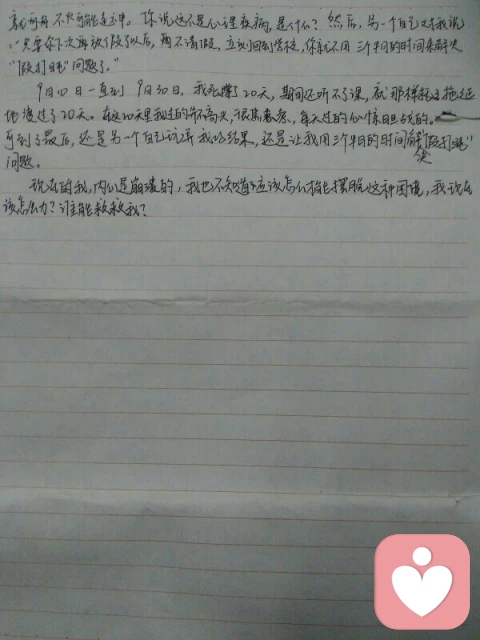 就可再不只可能是这中。你说这不是心理疾病,是什么?然后,另一个自己又对我说
:"只要你下次再放假了以后,再不请假,立刻回到学校,你就不用三个半月的时间来解决
"假打眊"问题了。"
9月10日一直到9月30日。我死撑了20天,期间还听不了课,就那样拖拖延延
地渡过了20天。在这20天里我过的并不高兴,很焦急,每天过的心惊胆战的。
可到了最后,还是另一个自己玩弄我的结果,还是让我用三个半月的时间解决"假打眊"
问题。
现在的我,内心是崩溃的,我也不知道应该怎么才能摆脱这种困境,我现在
该怎么办?谁能救救我?